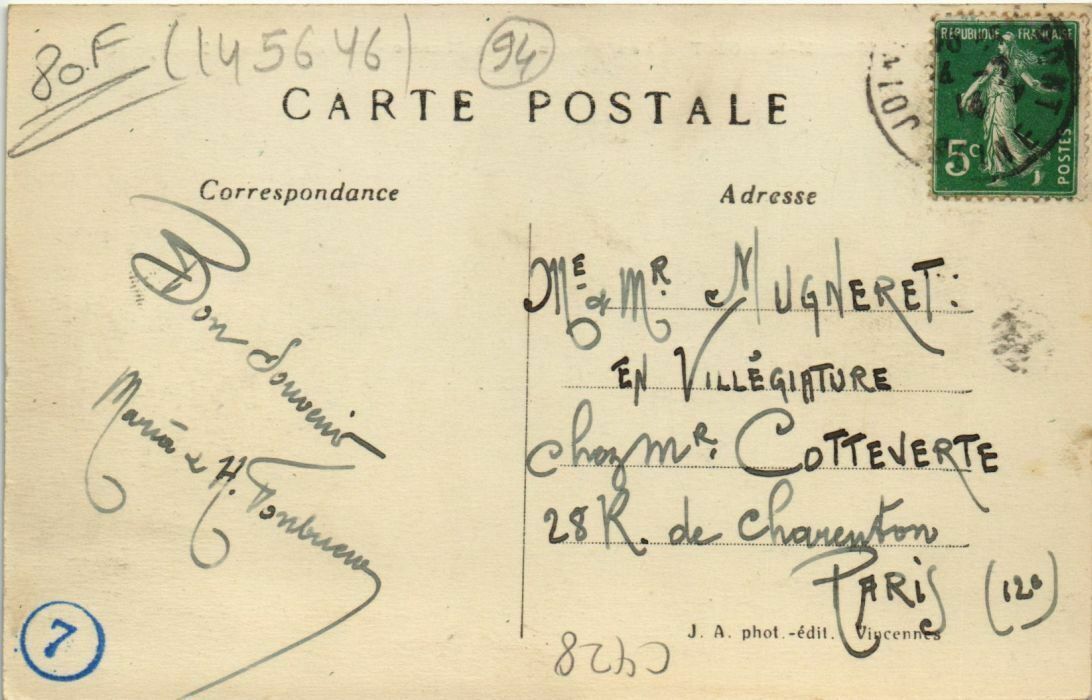 80.F (145646) 94
CARTE POSTALE
RÉPUBLIQUE FRANÇAISE
5c
POSTES
Correspondance
Bon Souvenir
Maria & H.
Adresse
ME & MR MUGNERET:
EN VILLÉGIATURE
chez mr. COTTEVERTE
28 R. de Charenton
PARIS (12e)
J. A. phot.-édit. Vincennes
7